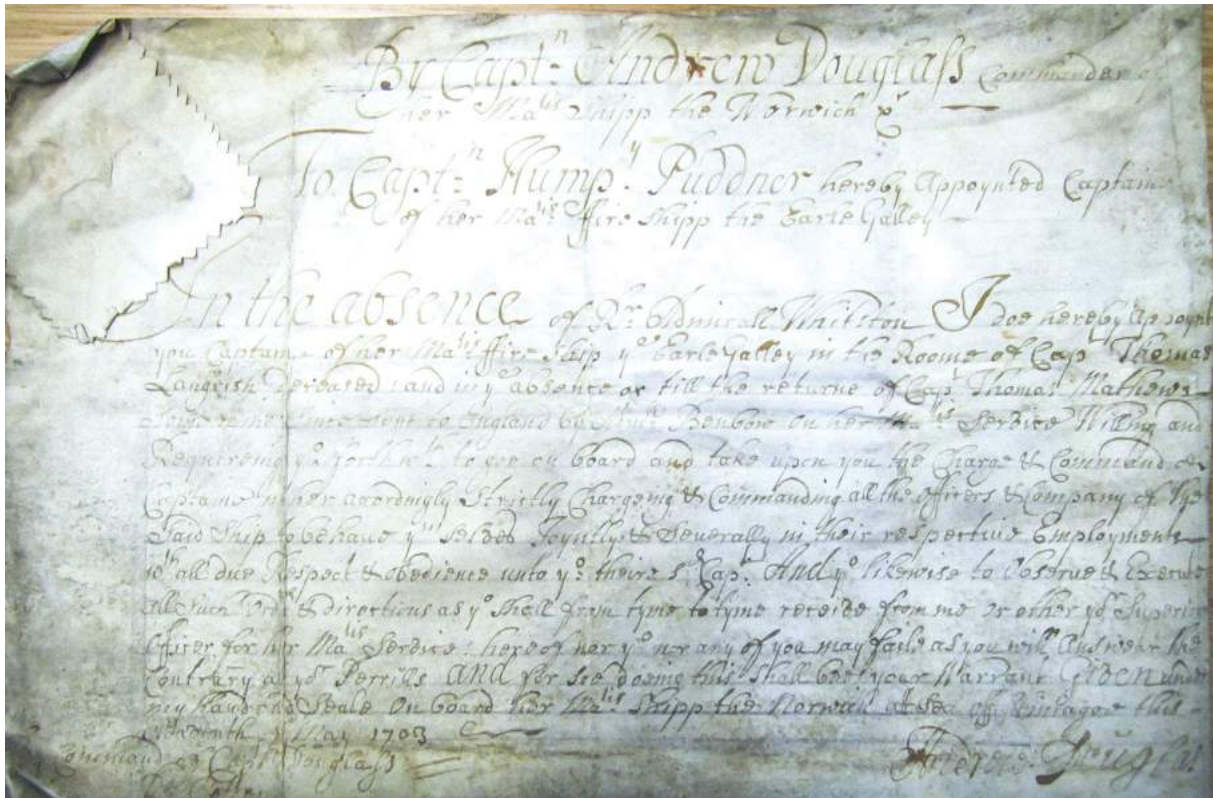 By Capt:n Andrew Douglass Commander of
her Ma:tis Shipp the Norwich &c
To Capt:n Hump:y Puddner hereby Appoynted Captaine
of her Ma:tis ffire Shipp the Earle Galley
In the absence of Rr: Admirall Whitston I doe hereby Appoynt
you Captaine of her Ma:tis ffire Ship ye Earle Galley in the Roome of Cap:t Thomas
Langrish Deceased: and in ye absence or till the returne of Cap:t Thomas Mathews
to England by Benbow On her Ma:tis Service Willing and
Requireing yo: forthwth: to goe on board and take upon you the Charge & Command of
Captaine in her acordingly Strictly Chargeing & Commanding all the Officers & Company of the
Said Ship to behave ym: selves Joyntly & Severally in their respective Employments
wth: all due Respect & obedience unto yo: theire sd: Cap:t And yo: likewise to Observe & Execute
all such Ordrs: & directions as yo: Shall from tyme to tyme receive from me or other yor: Superior
Officer for her Ma:tis Service: hereof nor yo: nor any of you may faile as you will Answear the
Contrary at yor: Perrills And for soe doeing this Shall bee your Warrant Given under
my hand and Seale On board her Ma:tis Shipp the Norwich at sea off this
May 1703
Command of Capt: Douglass
Andrew: Douglas